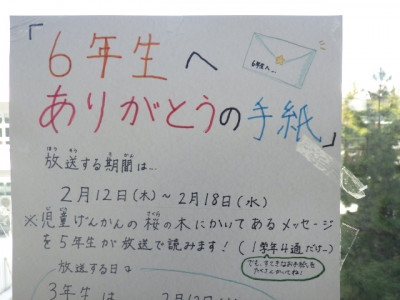 「6年生へ
6年生へ…
ありがとうの手紙」
放送する期間は…
2月12日(木)～2月18日(水)
※児童げんかんの桜の木にかいてあるメッセージ
を5年生が放送で読みます！(1学年4通だけ…)
でも、すてきなお手紙を
たくさんかいてね！
放送する日は
3年生は